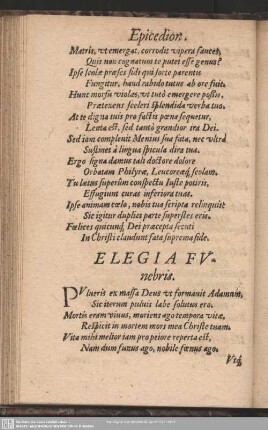 Epicedion.
Matris, vt emergat, corrodit vipera fauces,
Quis non cognatum te putet esse genus?
Ipse scholæ præses fidi qui sorte parentis
Fungitur, haud rabido tutus ab ore fuit.
Hunc morsu violas, vt tutò emergere possis,
Prætexens sceleri splendida verba tuo.
At te digna tuis pro factis pœna sequetur,
Lenta est, sed tantò grandior ira Dei.
Sed iam compleuit Menius sua fata, nec vltrà
Sustinet à lingua spicula dira tua.
Ergo signa damus tali doctore dolore
Orbatam Philyræ, Leucoreæq́; scolam.
Tu lætus superûm conspectu Iuste potiris,
Effugiunt curæ inferiora tuæ.
Ipse animam cœlo, nobis tua scripta relinquis
Sic igitur duplici parte superstes eris.
Fœlices quicunq́; Dei præcepta secuti
In Christi claudunt fata suprema fide.
ELEGIA FV-
nebris.
PVlueris ex massa Deus vt formauit Adamum,
Sic iterum puluis labe solutus ero.
Mortis eram viuus, moriens ago tempora vitæ,
Respicit in mortem mors mea Christe tuam.
Vita mihi melior iam pro peiore reperta est,
Nam dum funus ago, nobile fœnus ago.
Vtq́;